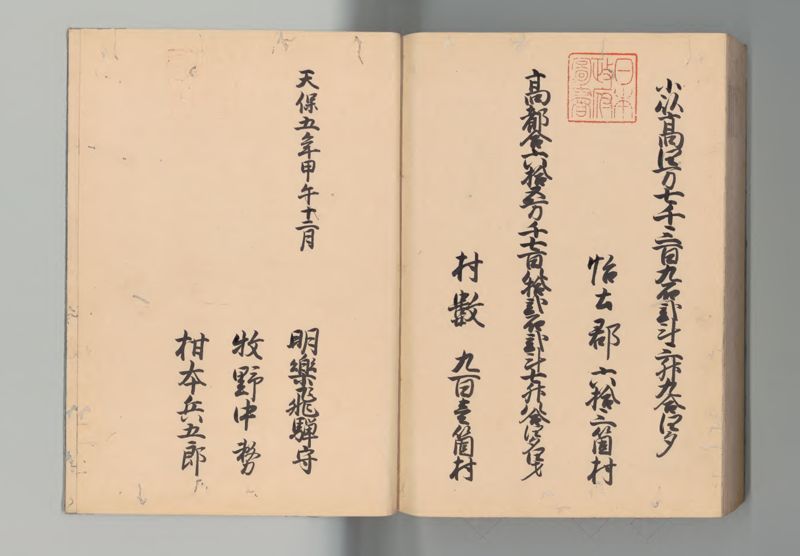 日本政府圖書
小以高四万七千三百九石弐斗六升九合四夕
怡土郡 六拾二箇村
高都合六拾五万千七百八拾弐石弐斗七升八合四夕四才
村數 九百壹箇村
天保五年甲午十二月
明樂飛騨守
牧野中務
柑本兵五郎